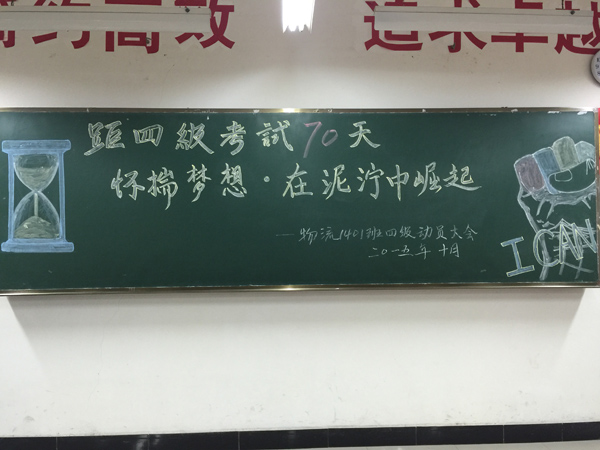 简约高效 追求卓越
距四級考試70天
怀揣梦想·在泥泞中崛起
—物流1401班四级动员大会
二〇一五年十月
I CAN